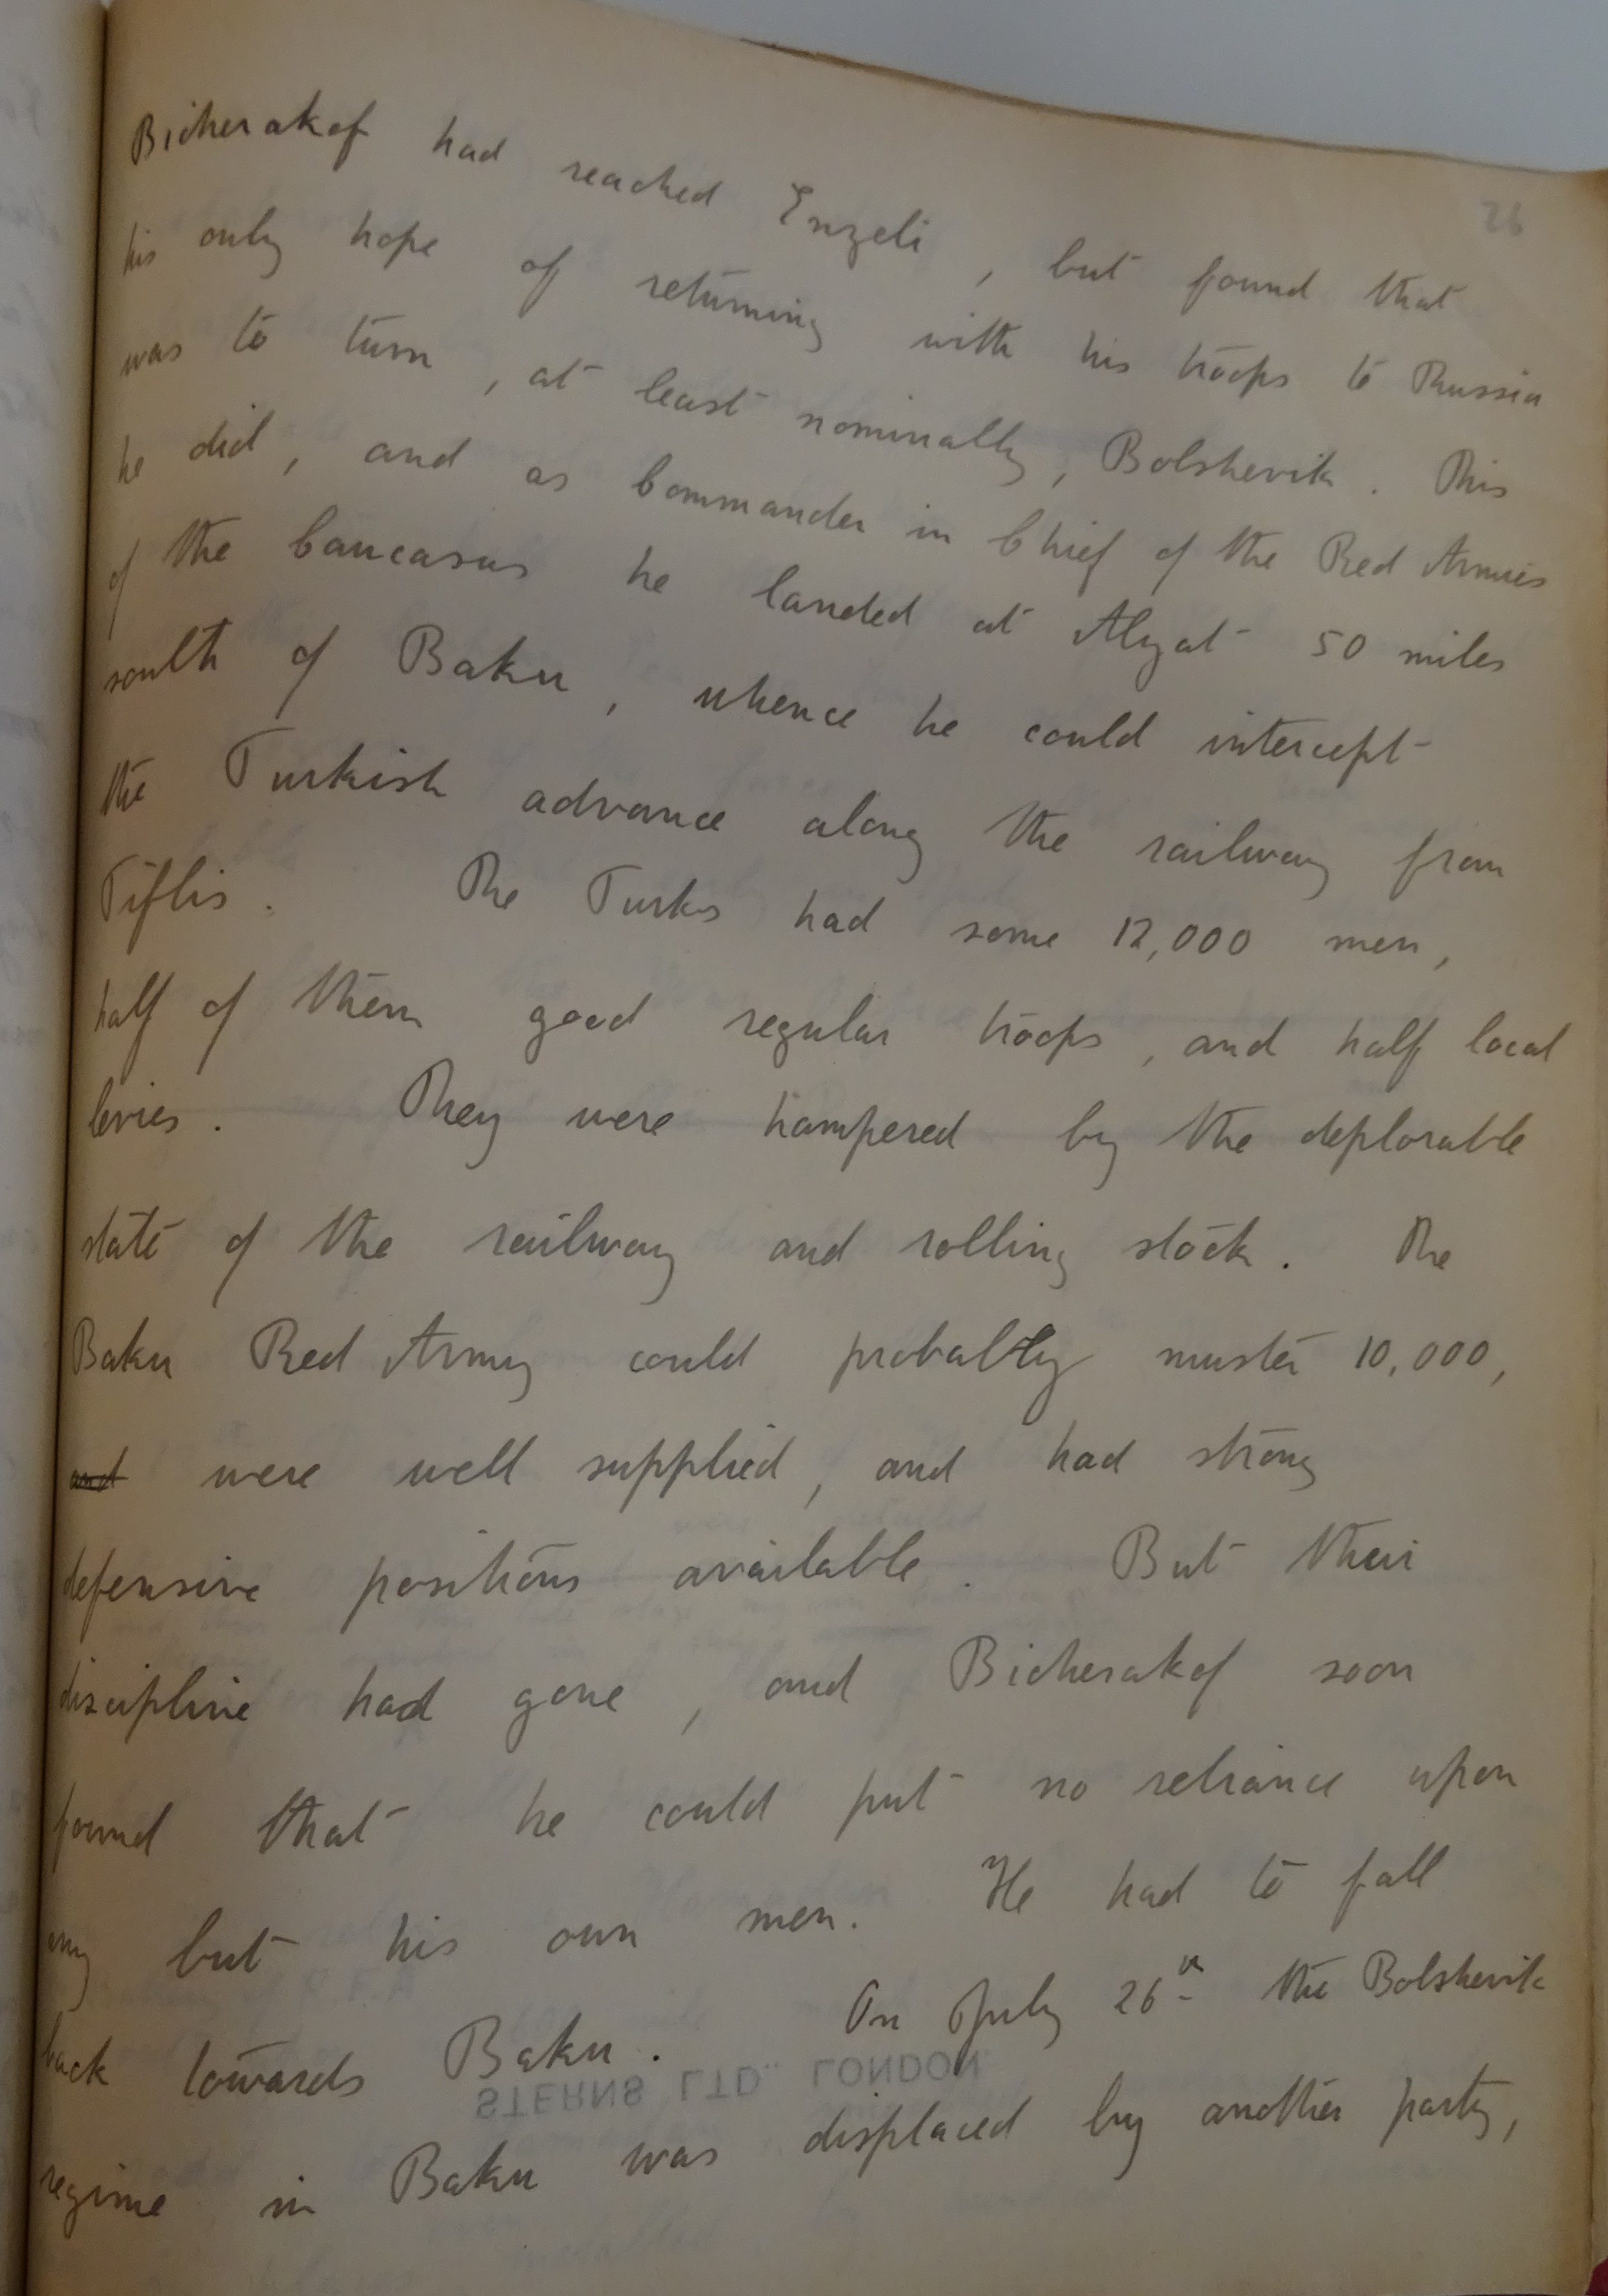 26
Bicherakof had reached Enzeli, but found that
his only hope of returning with his troops to Russia
was to turn, at least nominally, Bolshevik. This
he did, and as Commander in Chief of the Red Armies
of the Caucasus he landed at Alyat 50 miles
south of Baku, whence he could intercept
the Turkish advance along the railway from
Tiflis. The Turks had some 12,000 men,
half of them good regular troops, and half local
levies. They were hampered by the deplorable
state of the railway and rolling stock. The
Baku Red Army could probably muster 10,000,
and were well supplied, and had strong
defensive positions available. But their
discipline had gone, and Bicherakof soon
found that he could put no reliance upon
any but his own men. He had to fall
back towards Baku. On July 26th the Bolshevik
STERNS LTD. LONDON
regime in Baku was displaced by another party,